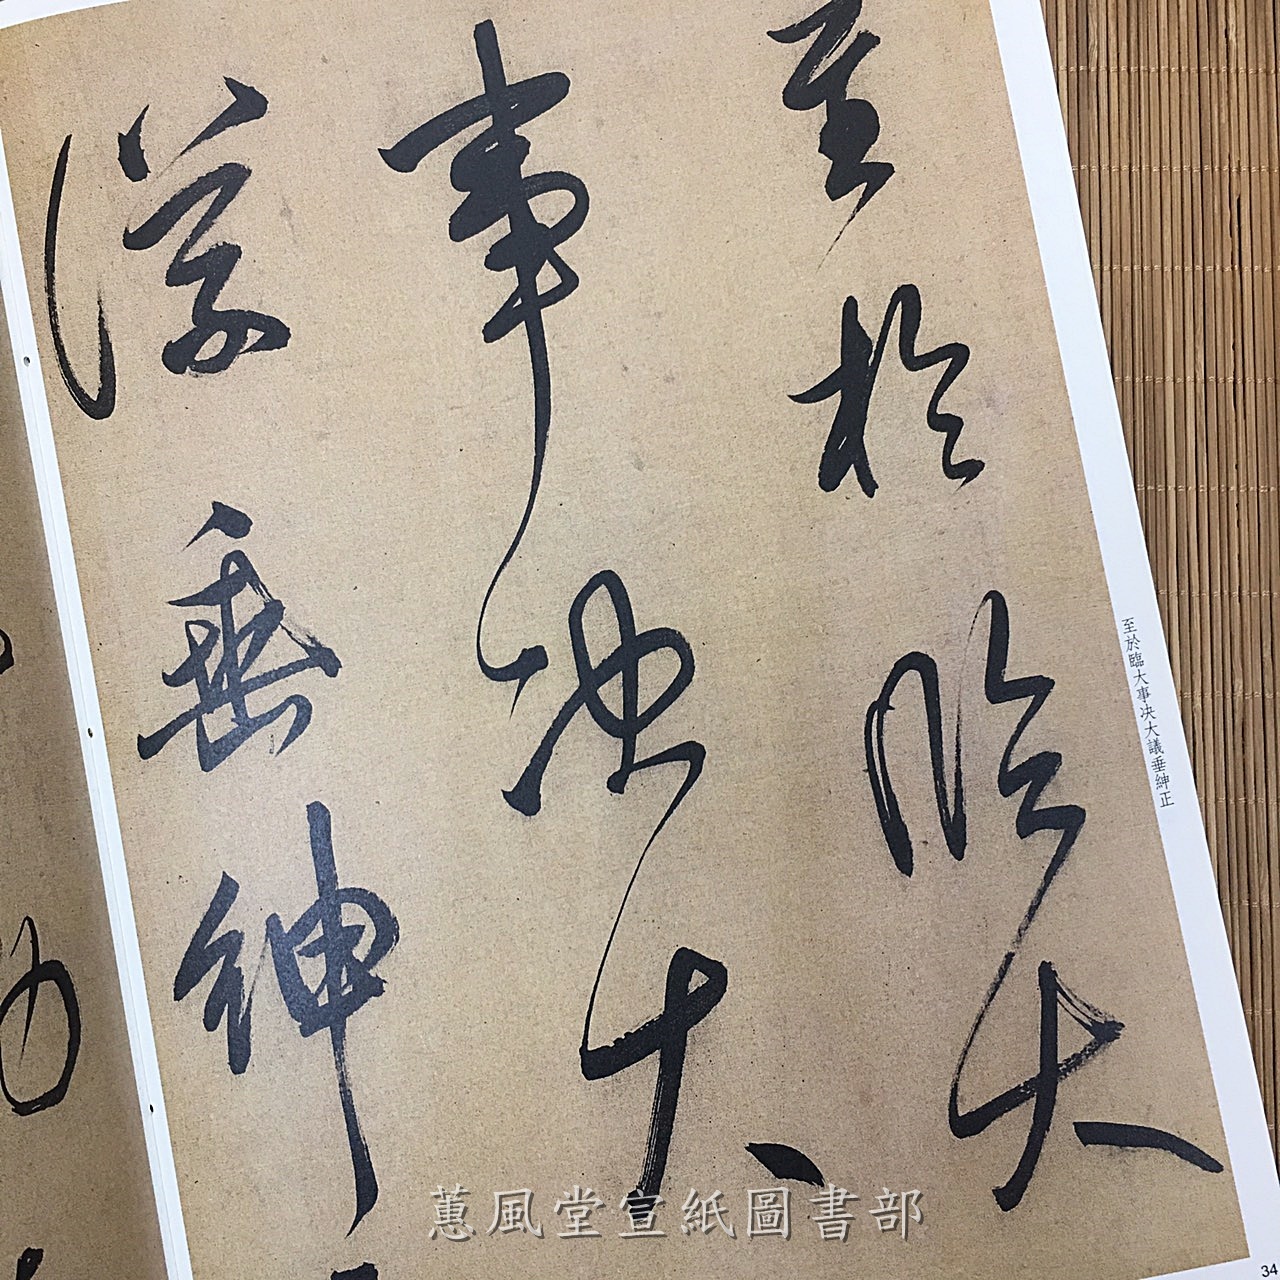 至於臨大
事決大
議垂紳
至於臨大事决大議垂紳正
34
蕙風堂宣紙圖書部